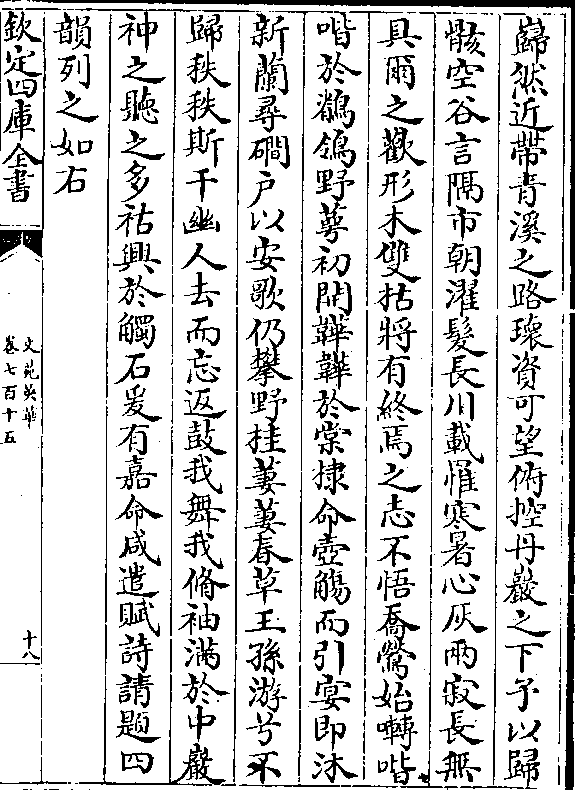 巋然近帶青溪之路瓌資可望俯控丹巖之下予以歸
骸空谷言隔市朝濯髮長川載罹寒暑心灰兩寂長無
具爾之歡形木雙枯將有終焉之志不悟喬鶯始囀喈
喈於鶺鴒野萼初開韡韡於棠棣命壺觴而引宴即沐
新蘭尋磵户以安歌仍攀野桂萋萋春草王孫游兮不
歸秩秩斯干幽人去而忘返鼓我舞我脩袖滿於中巖
神之聽之多祜興於觸石爰有嘉命咸遣賦詩請題四
韻列之如右
欽定四庫全書
文苑英華
卷七百十五
十八